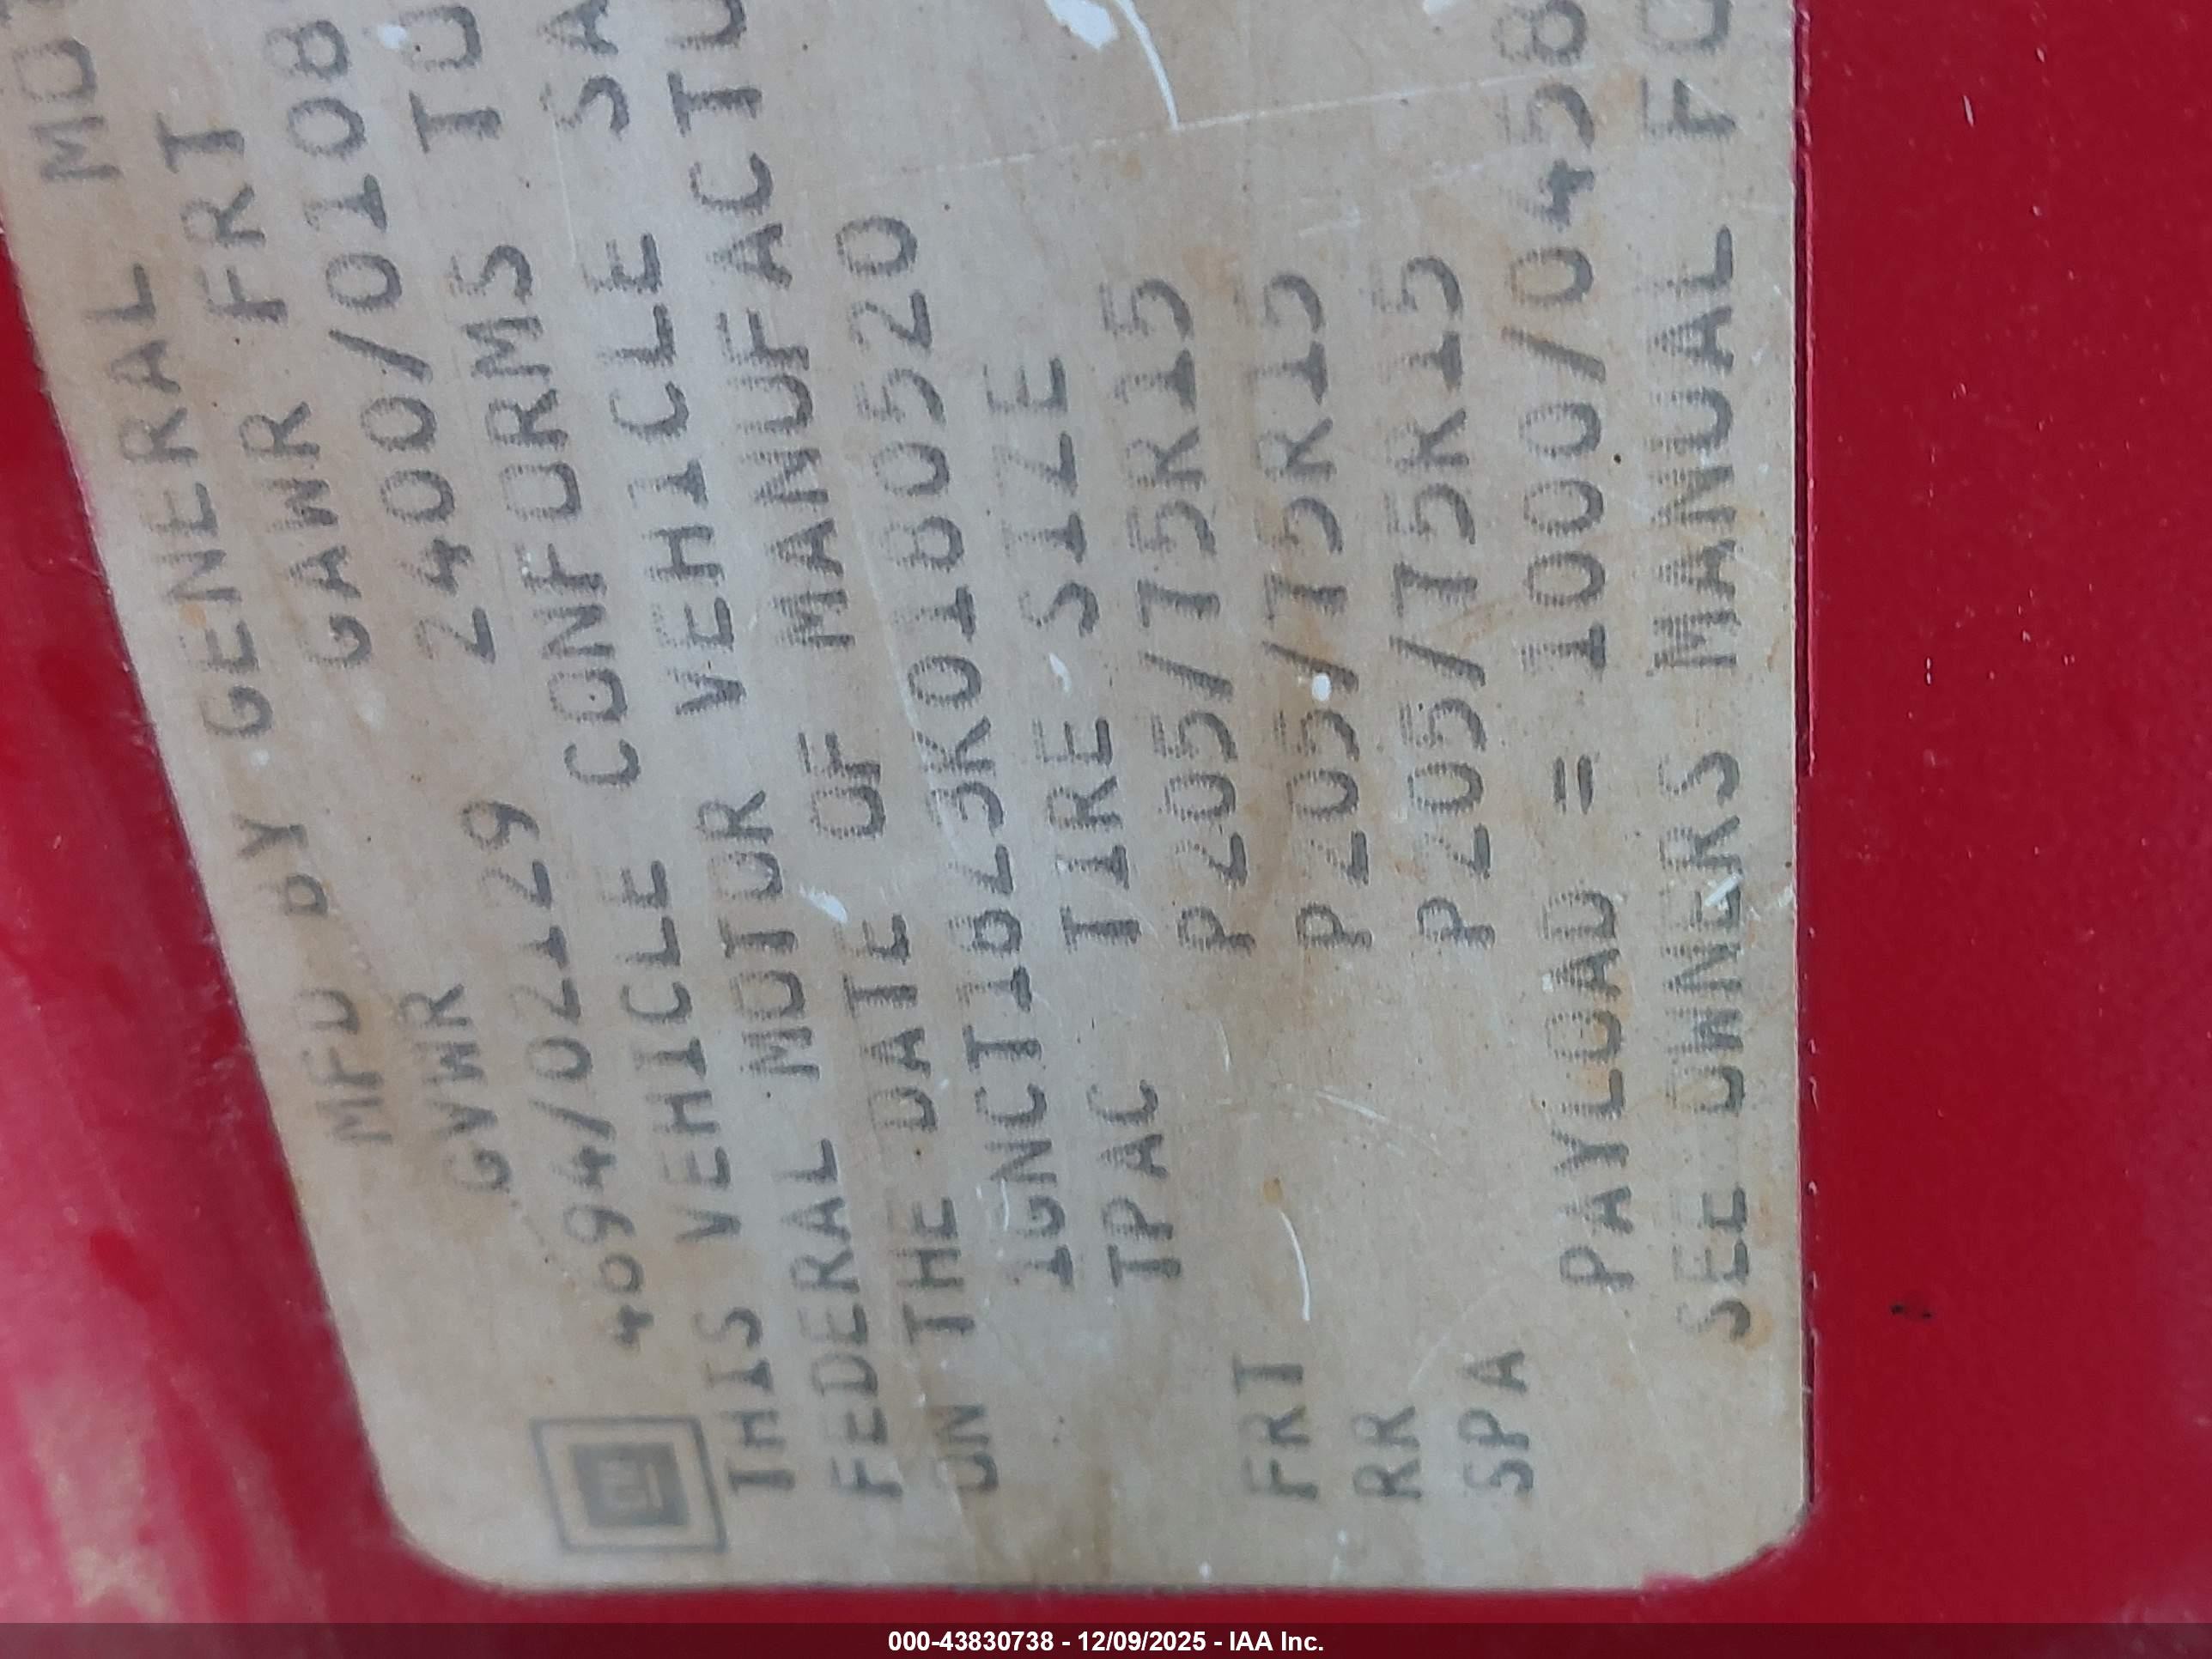 MFD BY GENERAL MOT
GVWR GAWR FRT
4694/02129 2400/0108
THIS VEHICLE CONFORMS TO
FEDERAL MOTOR VEHICLE SA
ON THE DATE OF MANUFACTU
1GNCT18Z3K0180520
TPAC TIRE SIZE
FRT P205/75R15
RR P205/75R15
SPA P205/75R15
PAYLOAD = 1000/0458
SEE OWNERS MANUAL FO
000-43830738 - 12/09/2025 - IAA Inc.